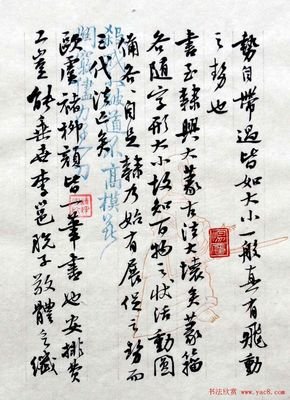 势自带过皆如大小一般真有飞動
之势也
书至隸興大篆古法大壞矣篆籀
各随字形大小故知百物之状活動圓
備各各自足隸乃始有展促之势而
三代法亡矣
欧虞褚柳颜皆一筆书也安排費
工岂能垂世李邕脱子敬體乏纖
书法欣赏
www.yac8.com